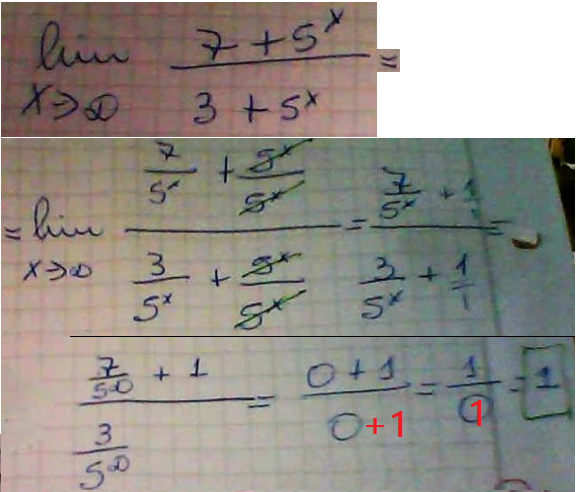 lim x→∞ (7 + 5^x)/(3 + 5^x) =
= lim x→∞ (7/5^x + 5^x/5^x)/(3/5^x + 5^x/5^x) = (7/5^x + 1/1)/(3/5^x + 1/1) =
(7/5^∞ + 1)/(3/5^∞) = (0 + 1)/(0 +1) = 1/1 = 1